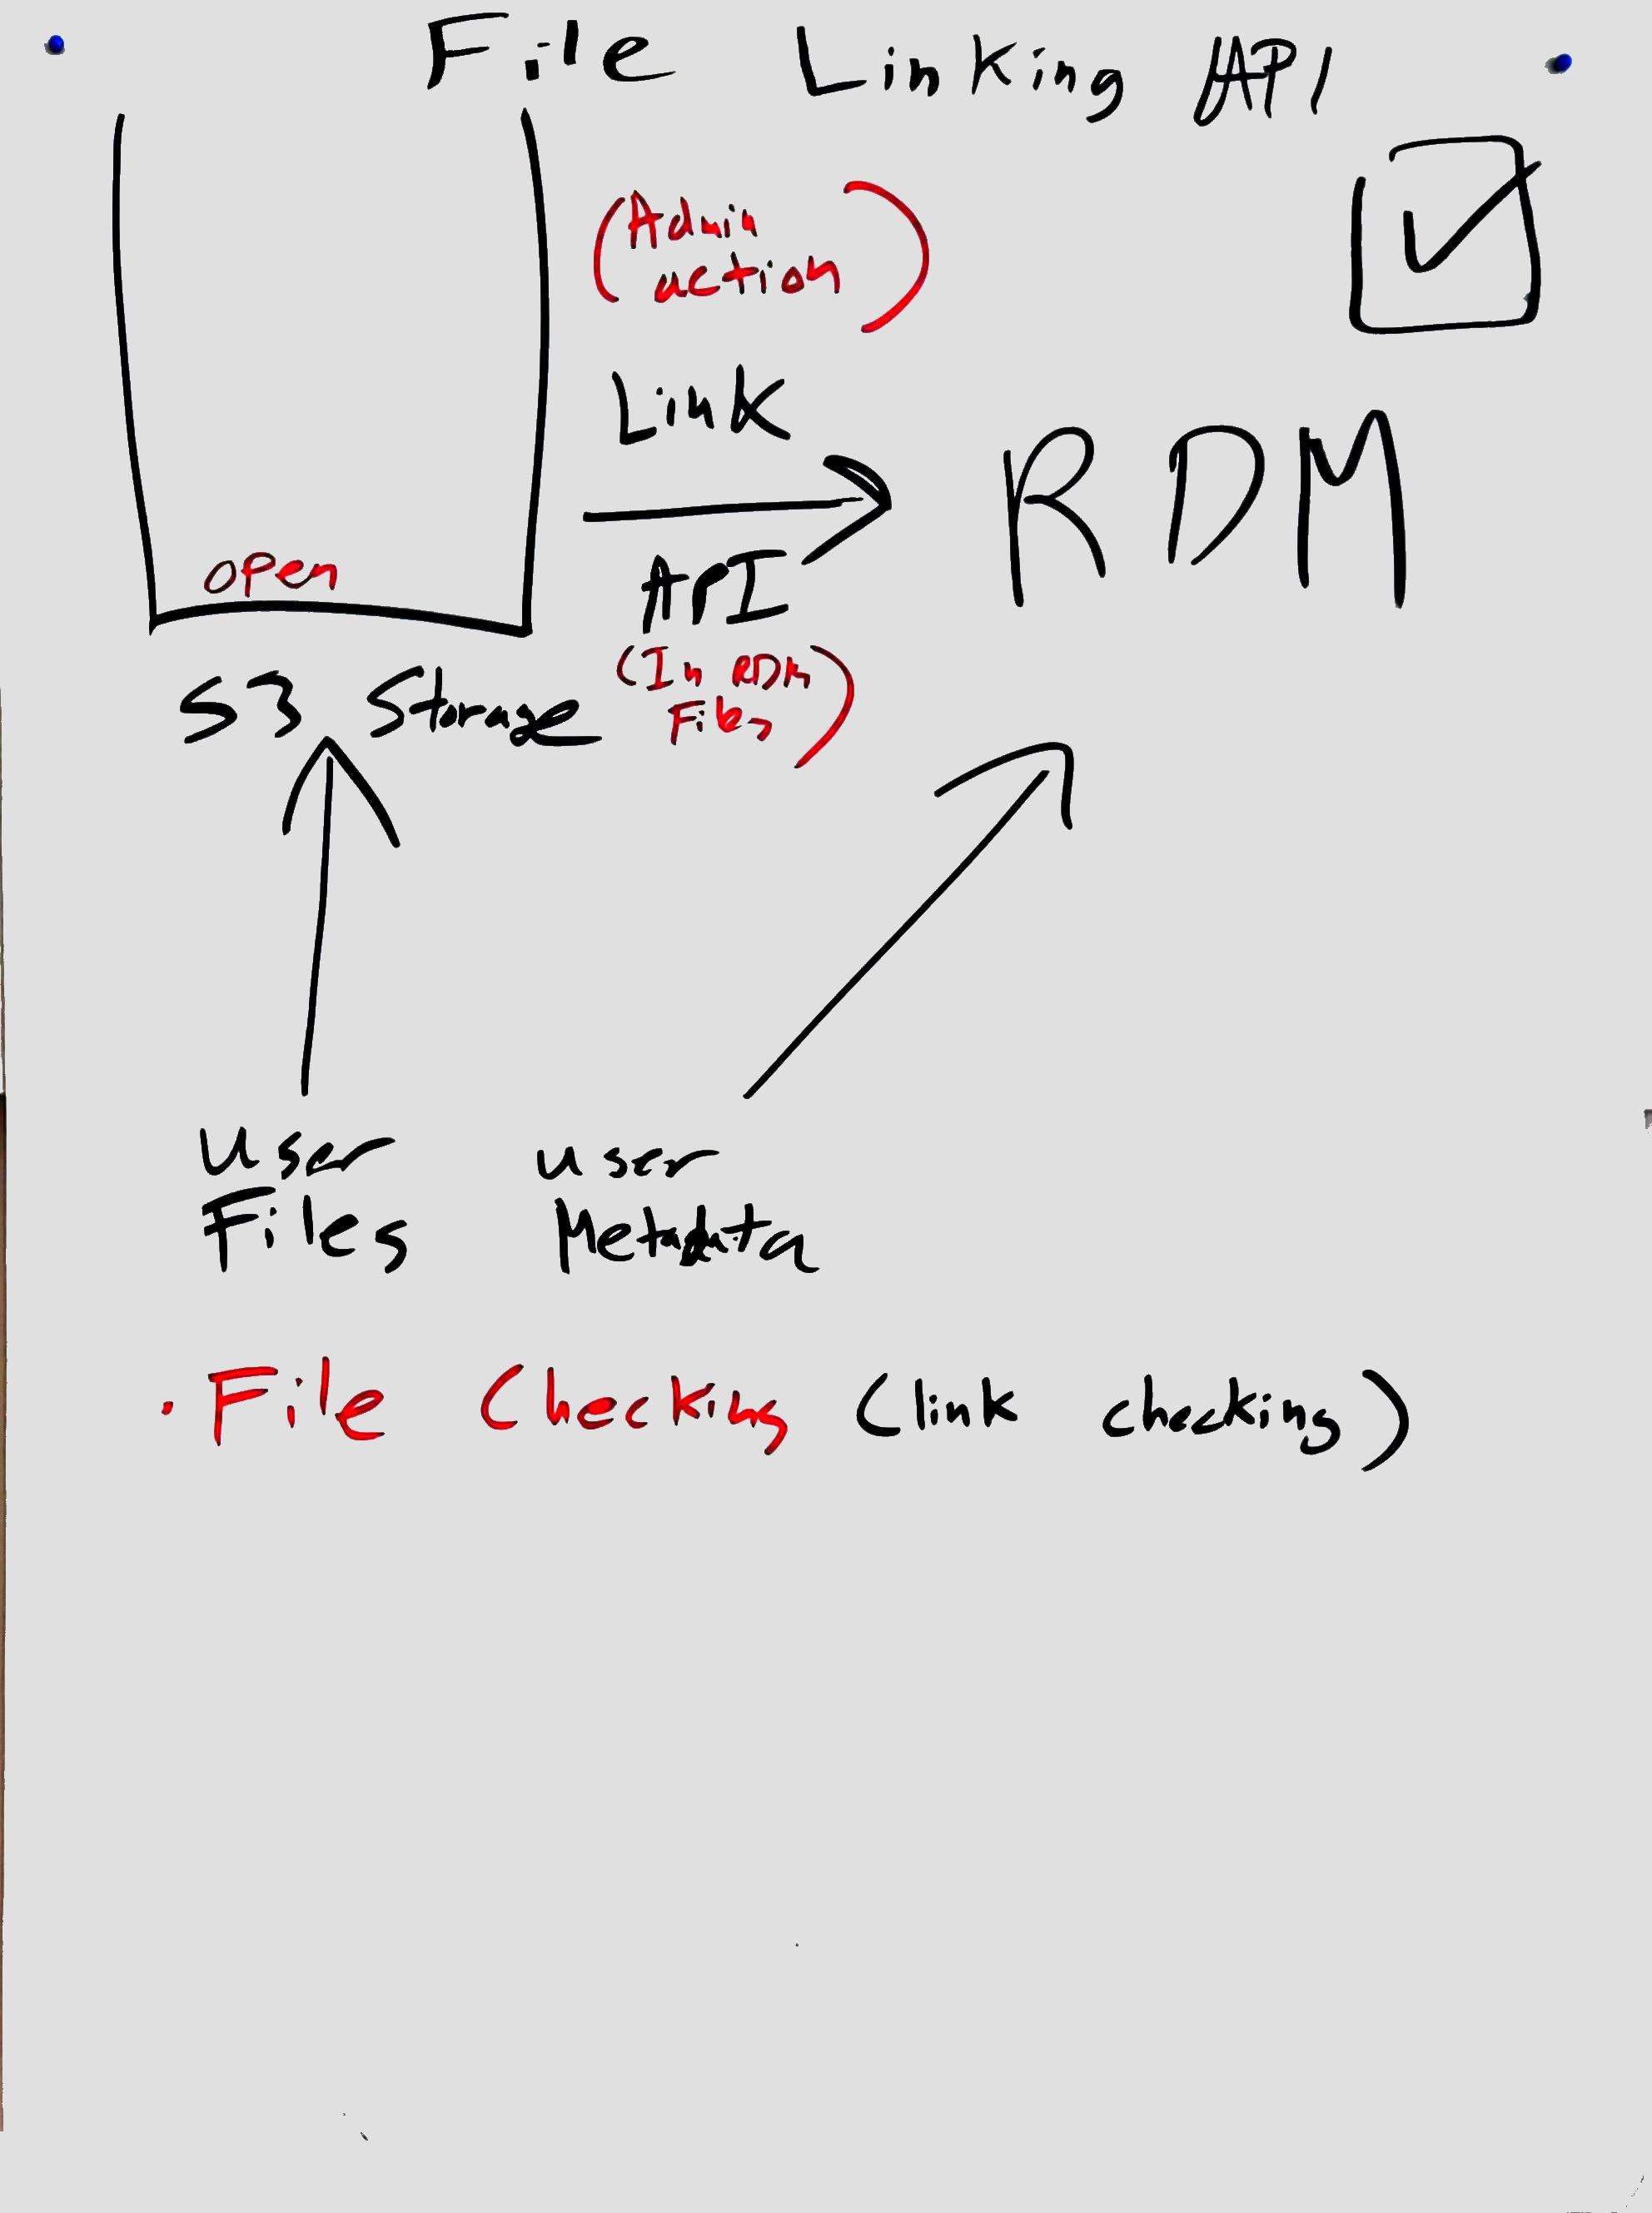 File Linking API
(Admin
action)
Link
RDM
API
open
(In RDM
Files)
S3 Storage
User
Files
user
Metadata
• File Checking (link checking)